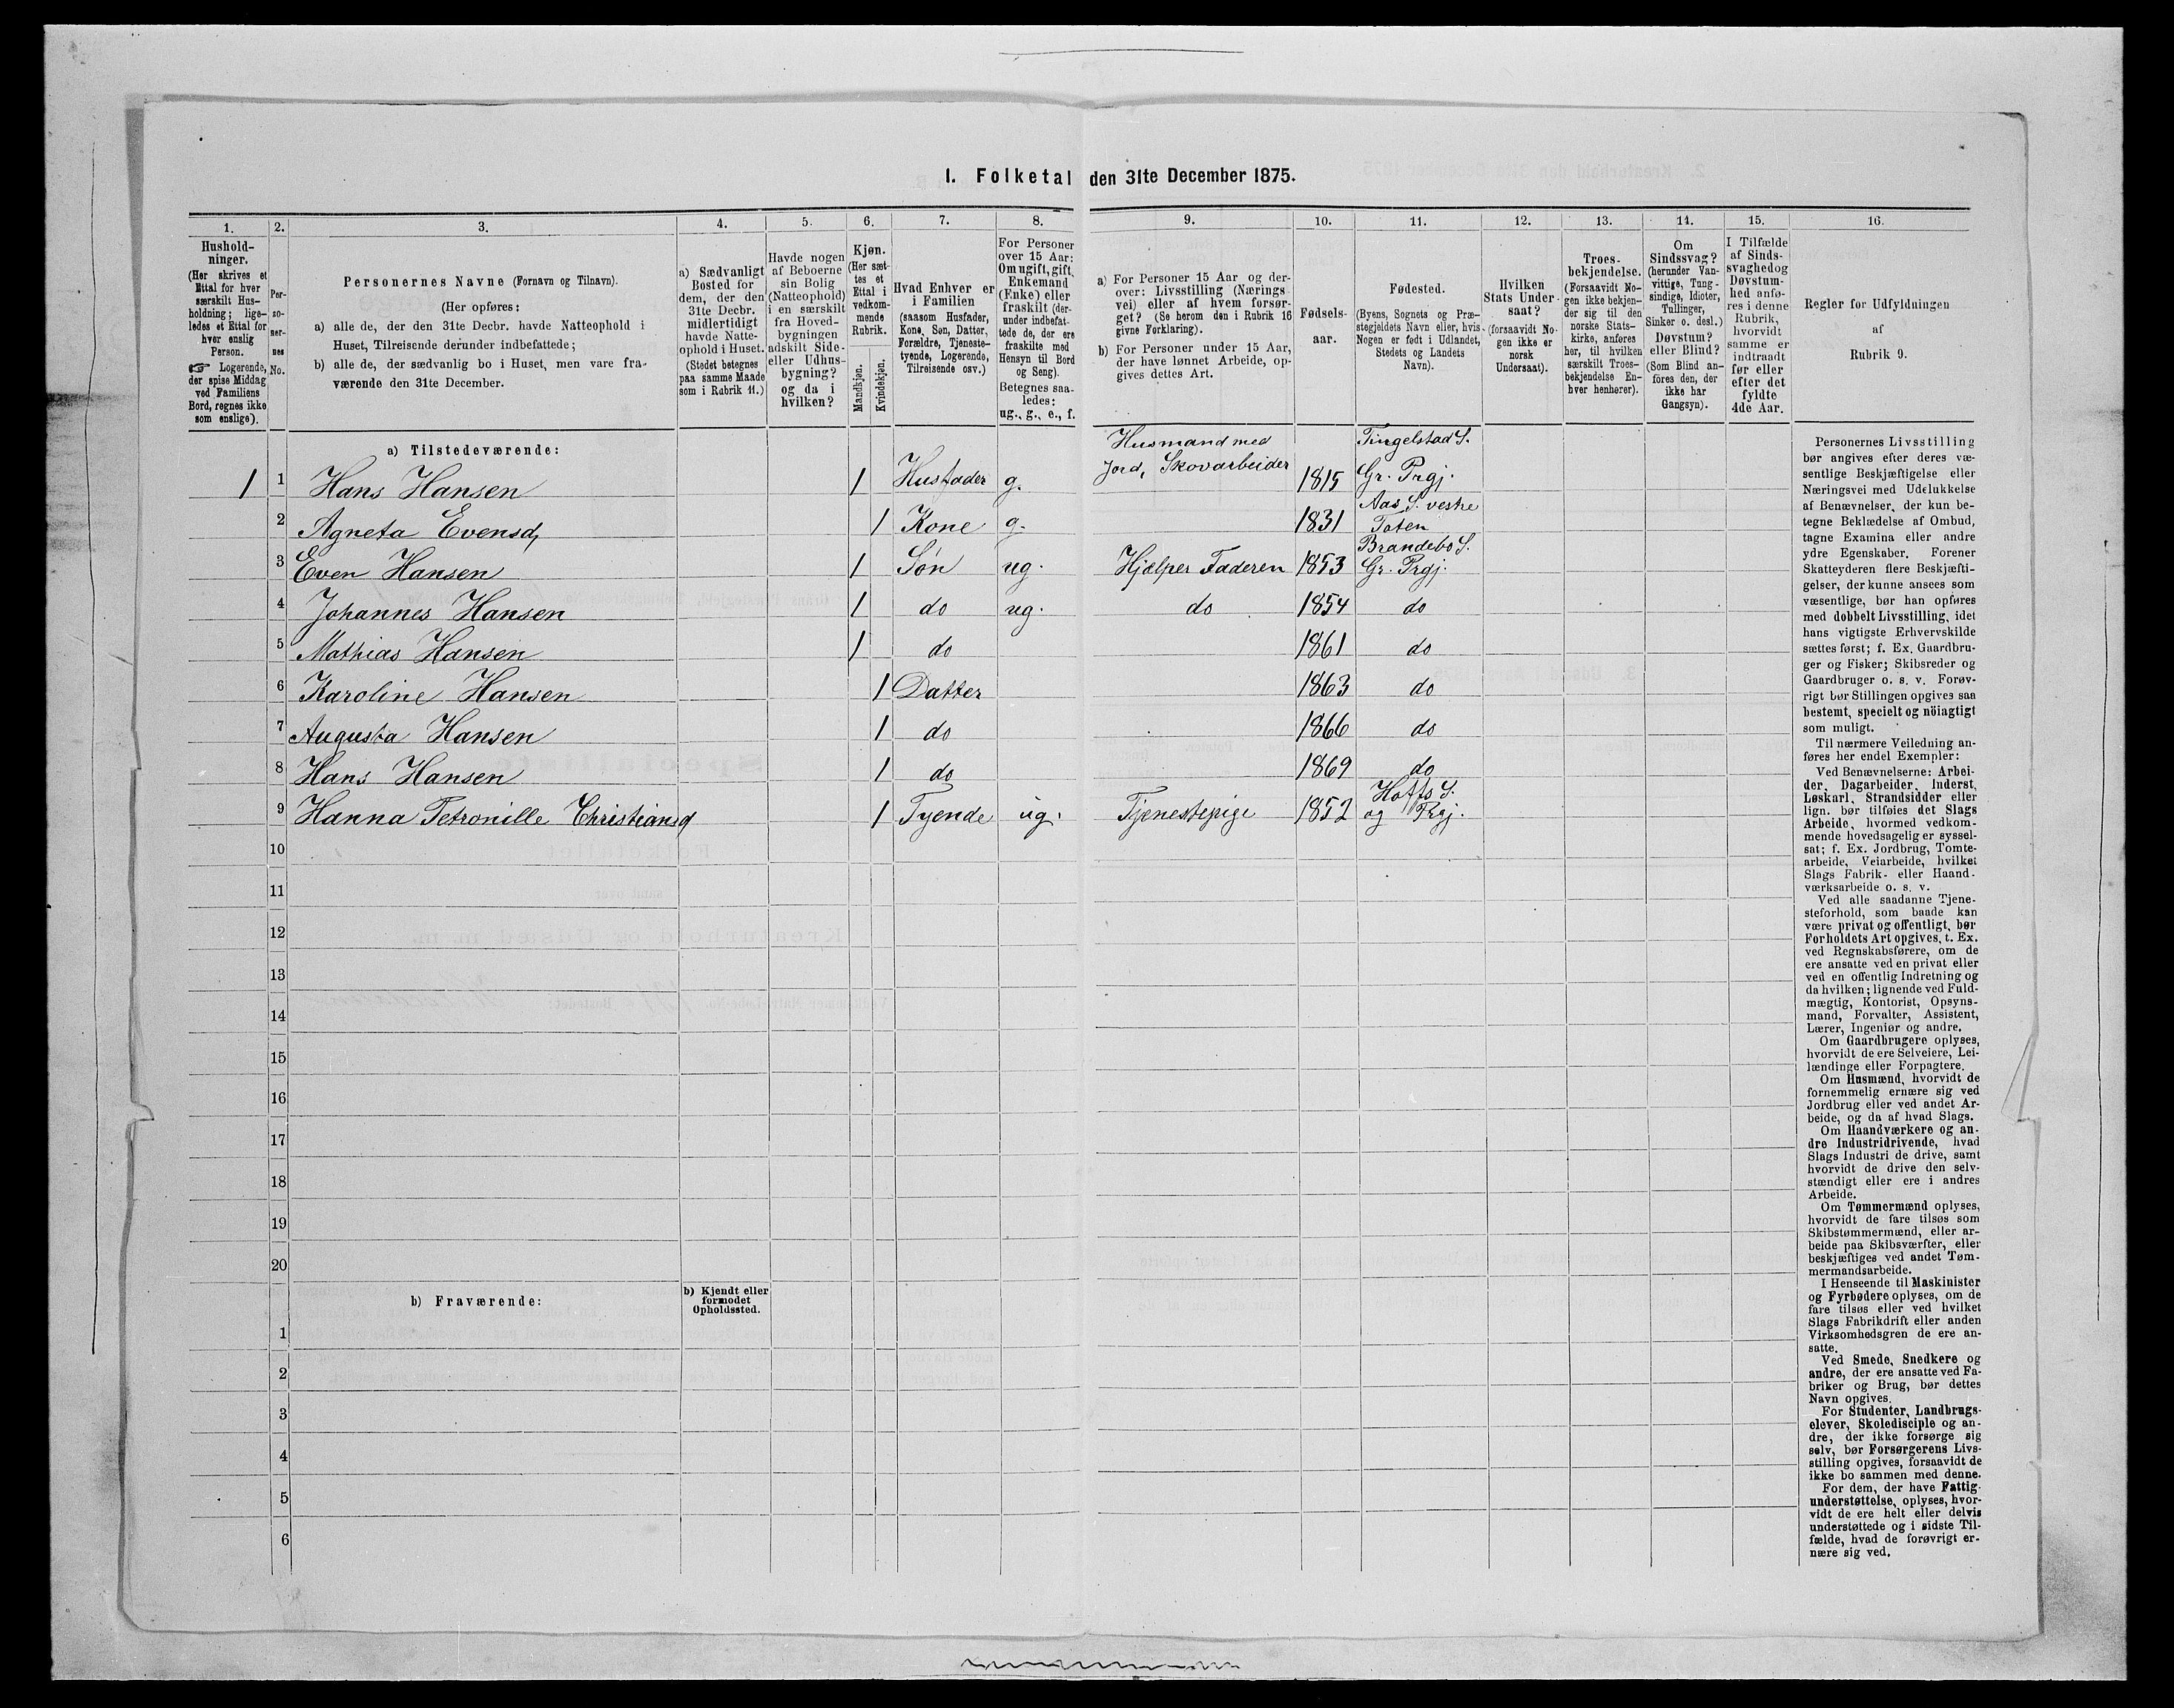 1. Folketal den 31te December 1875.
1.
Hushold-
ninger.
(Her skrives et
Ettal for hver
særskilt Hus-
holdning; lige-
ledes et Ettal for
hver enslig
Person.
☞ Logerende,
der spise Middag
ved Familiens
Bord, regnes ikke
som enslige).
2.
Per-
so-
ner-
nes
No.
3.
Personernes Navne (Fornavn og Tilnavn).
(Her opføres:
a) alle de, der den 31te Decbr. havde Natteophold i
Huset, Tilreisende derunder indbefattede;
b) alle de, der sædvanlig bo i Huset, men vare fra-
værende den 31te December.
4.
a) Sædvanligt
Bosted for
dem, der den
31te Decbr.
midlertidigt
havde Natte-
ophold i Huset.
(Stedet betegnes
paa samme Maade
som i Rubrik 11.)
5.
Havde nogen
af Beboerne
sin Bolig
(Natteophold)
i en særskilt
fra Hoved-
bygningen
adskilt Side-
eller Udhus-
bygning?
og da i
hvilken?
6.
Kjøn.
(Her sæt-
tes et
Ettal i
vedkom-
mende
Rubrik.
Mandkjøn.
Kvindekjøn.
7.
Hvad Enhver er
i Familien
(saasom Husfader,
Kone, Søn, Datter,
Forældre, Tjeneste-
tyende, Logerende,
Tilreisende osv.)
8.
For Personer
over 15 Aar:
Om ugift, gift,
Enkemand
(Enke) eller
fraskilt (der-
under indbefat-
tede de, der ere
fraskilte med
Hensyn til Bord
og Seng).
Betegnes saa-
ledes:
ug., g., e., f.
9.
a) For Personer 15 Aar og der-
over: Livsstilling (Nærings-
vei) eller af hvem forsør-
get? (Se herom den i Rubrik 16
givne Forklaring).
b) For Personer under 15 Aar,
der have lønnet Arbeide, op-
gives dettes Art.
10.
Fødsels-
aar.
11.
Fødested.
(Byens, Sognets og Præ-
stegjeldets Navn eller, hvis
Nogen er født i Udlandet,
Stedets og Landets
Navn).
12.
Hvilken
Stats Under-
saat?
(forsaavidt No-
gen ikke er
norsk
Undersaat).
13.
Troes-
bekjendelse.
(Forsaavidt No-
gen ikke bekjen-
der sig til den
norske Stats-
kirke, anføres
her, til hvilken
særskilt Troes-
bekjendelse En-
hver henhører).
14.
Om
Sindssvag?
(herunder Van-
vittige, Tung-
sindige, Idioter,
Tullinger,
Sinker o. desl.)
Døvstum?
eller Blind?
(Som Blind an-
føres den, der
ikke har
Gangsyn).
15.
I Tilfælde
af Sinds-
svaghed og
Døvstum-
hed anfø-
res i denne
Rubrik,
hvorvidt
samme er
indtraadt
før eller
efter det
fyldte
4de Aar.
16.
Regler for Udfyldningen
af
Rubrik 9.
a) Tilstedeværende:
Husmand med Tingelstad S.
1 1 Hans Hansen 1 Husfader g. Jord, Skovarbeider 1815 Gr. Prgj.
Aas S. vestre
2 Agneta Evensd, 1 Kone g. 1831 Toten
Brandebo S.
3 Even Hansen 1 Søn ug. Hjælper Faderen 1853 Gr. Prgj.
4 Johannes Hansen 1 do ug. do 1854 do
5 Mathias Hansen 1 do 1861 do
6 Karoline Hansen 1 Datter 1863 do
7 Augusta Hansen 1 do 1866 do
8 Hans Hansen 1 do 1869 do
Hoffs S.
9 Hanna Petronille Christiansd 1 Tyende ug. Tjenestepige 1852 og Prgj.
10
11
12
13
14
15
16
17
18
19
20
b) Fraværende:
b) Kjendt eller
formodet
Opholdssted.
1
2
3
4
5
6
Personernes Livsstilling
bør angives efter deres væ-
sentlige Beskjæftigelse eller
Næringsvei med Udelukkelse
af Benævnelser, der kun be-
tegne Beklædelse af Ombud,
tagne Examina eller andre
ydre Egenskaber. Forener
Skatteyderen flere Beskjæfti-
gelser, der kunne ansees som
væsentlige, bør han opføres
med dobbelt Livsstilling, idet
hans vigtigste Erhvervskilde
sættes først; f. Ex. Gaardbru-
ger og Fisker; Skibsreder og
Gaardbruger o. s. v. Forøv-
rigt bør Stillingen opgives saa
bestemt, specielt og nöiagtigt
som muligt.
Til nærmere Veiledning an-
føres her endel Exempler:
Ved Benævnelserne: Arbei-
der, Dagarbeider, Inderst,
Løskarl, Strandsidder eller
lign. bør tilføies det Slags
Arbeide, hvormed vedkom-
mende hovedsagelig er syssel-
sat; f. Ex. Jordbrug, Tomte-
arbeide, Veiarbeide, hvilket
Slags Fabrik- eller Haand-
værksarbeide o. s. v.
Ved alle saadanne Tjene-
steforhold, som baade kan
være privat og offentligt, bør
Forholdets Art opgives, t. Ex.
ved Regnskabsførere, om de
ere ansatte ved en privat eller
ved en offentlig Indretning og
da hvilken; lignende ved Fuld-
mægtig, Kontorist, Opsyns-
mand, Forvalter, Assistent,
Lærer, Ingeniør og andre.
Om Gaardbrugere oplyses,
hvorvidt de ere Selveiere, Lei-
lændinge eller Forpagtere.
Om Husmænd, hvorvidt de
fornemmelig ernære sig ved
Jordbrug eller ved andet Ar-
beide, og da af hvad Slags.
Om Haandværkere og an-
dre Industridrivende, hvad
Slags Industri de drive, samt
hvorvidt de drive den selv-
stændigt eller ere i andres
Arbeide.
Om Tømmermænd oplyses,
hvorvidt de fare tilsøs som
Skibstømmermænd, eller ar-
beide paa Skibsværfter, eller
beskjæftiges ved andet Tøm-
mermandsarbeide.
I Henseende til Maskinister
og Fyrbødere oplyses, om de
fare tilsøs eller ved hvilket
Slags Fabrikdrift eller anden
Virksomhedsgren de ere an-
satte.
Ved Smede, Snedkere og
andre, der ere ansatte ved Fa-
briker og Brug, bør dettes
Navn opgives.
For Studenter, Landbrugs-
elever, Skoledisciple og an-
dre, der ikke forsørge sig
selv, bør Forsørgerens Livs-
stilling opgives, forsaavidt de
ikke bo sammen med denne.
For dem, der have Fattig-
understøttelse, oplyses, hvor-
vidt de ere helt eller delvis
understøttede og i sidste Til-
fælde, hvad de forøvrigt er-
nære sig ved.